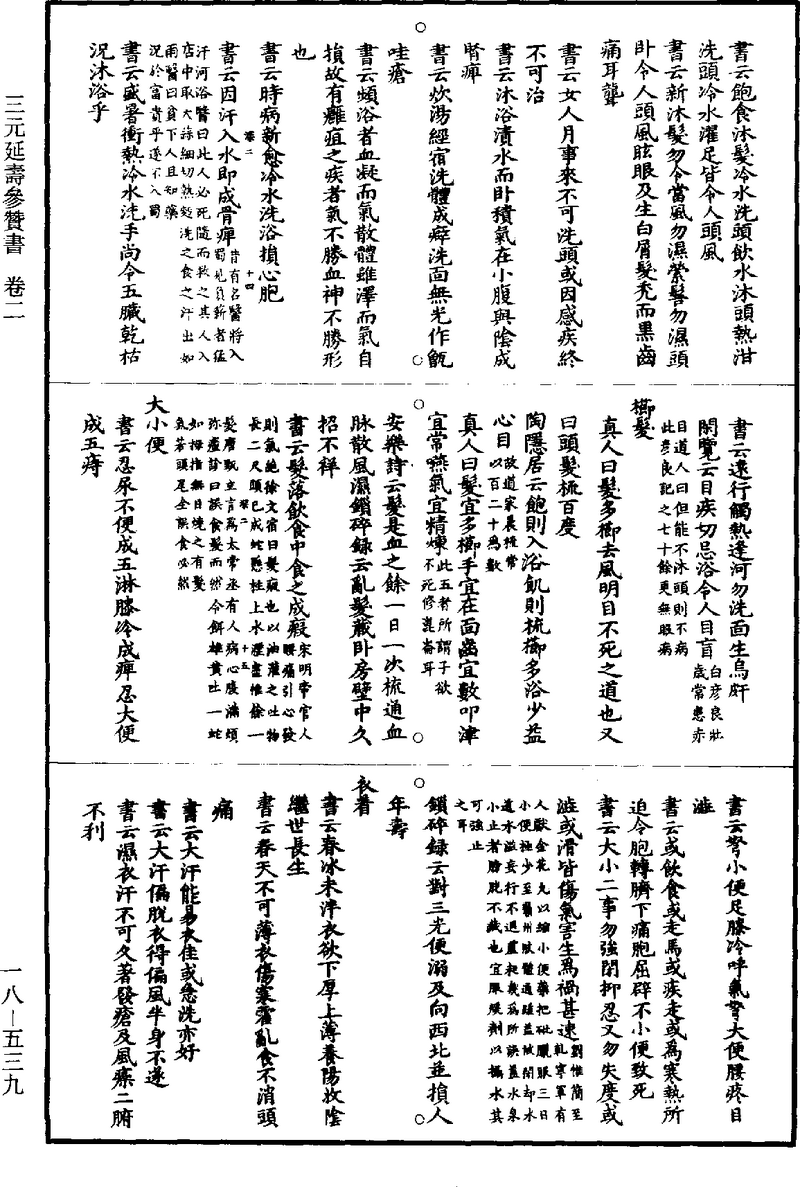 三元延壽參贊書　卷二
一八—五三九
書云飽食沐髮冷水洗頭飲水沐頭熱泔
洗頭冷水濯足皆令人頭風
書云新沐髮勿令當風勿濕縈髻勿濕頭
卧令人頭風眩眼及生白屑髮禿而黑齒
痛耳聾
書云女人月事來不可洗頭或因感疾終
不可治
書云沐浴漬水而卧積氣在小腹與陰成
腎痺
書云炊湯經宿洗體成癬洗面無光作甑
哇瘡
書云頻浴者血凝而氣散體雖澤而氣自
損故有癰疽之疾者氣不勝血神不勝形
也
書云時病新愈冷水洗浴損心胞
書云因汗入水即成骨痺昔有名醫將入
蜀見負薪者猛
汗河浴醫曰此人必死隨而救之其人入
店中取大蒜細切熱麪洗之食之汗出如
雨醫曰貧下人且知藥
況於富貴乎遂不入蜀
書云盛暑衝熱冷水洗手尚令五臟乾枯
況沐浴乎
書云遠行觸熱逢河勿洗面生烏䵟
閑覽云目疾切忌浴令人目盲白彥良壯
歲常患赤
目道人曰但能不沐頭則不病
此彥良記之七十餘更無眼病
櫛髮
真人曰髮多櫛去風明目不死之道也又
曰頭髮梳百度
陶隱居云飽則入浴飢則梳櫛多浴少益
心目故道家晨梳常
以百二十為數
真人曰髮宜多櫛手宜在面齒宜數叩津
宜常嚥氣宜精煉此五者所謂子欲
不死修崑崙耳
安樂詩云髮是血之餘一日一次梳通血
脉散風濕鎖碎録云亂髮藏卧房壁中久
招不祥
書云髮落飲食中食之成瘕宋明帝官人
腰痛引心發
則氣絕徐文伯曰髮瘕也以油灌之吐物
長二尺頭已成蛇懸柱上水瀝盡惟餘一
髮唐甄立言為太常丞有人病心腹滿煩
弥歲診曰誤食髮而然令餌雄黄吐一蛇
如拇指無目燒之有髮
氣若頭尾全誤食必然
大小便
書云忍尿不便成五淋膝冷成痺忍大便
成五痔
書云弩小便足膝冷呼氣弩大便腰疼目
澁
書云或飲食或走馬或疾走或為寒熱所
迫令胞轉臍下痛胞屈辟不小便致死
書云大小二事勿強閉抑忍又勿失度或
澁或滑皆傷氣害生為禍甚速劉惟簡至
乾寧軍有
人獻金花丸以縮小便藥把砒臘服三日
小便極少至霸州肢體通腫蓋被閉却水
道水溢妄行不遇盧祀幾為所誤蓋水泉
小止者膀胱不藏也宜服煖劑以攝水其
可強止
之耳
鎖碎録云對三光便溺及向西北並損人
年壽
衣着
書云春冰未泮衣欲下厚上薄養陽收陰
繼世長生
書云春天不可薄衣傷寒霍亂食不消頭
痛
書云大汗能易衣佳或急洗亦好
書云大汗偏脫衣得偏風半身不遂
書云濕衣汗不可久著發瘡及風瘙二腑
不利